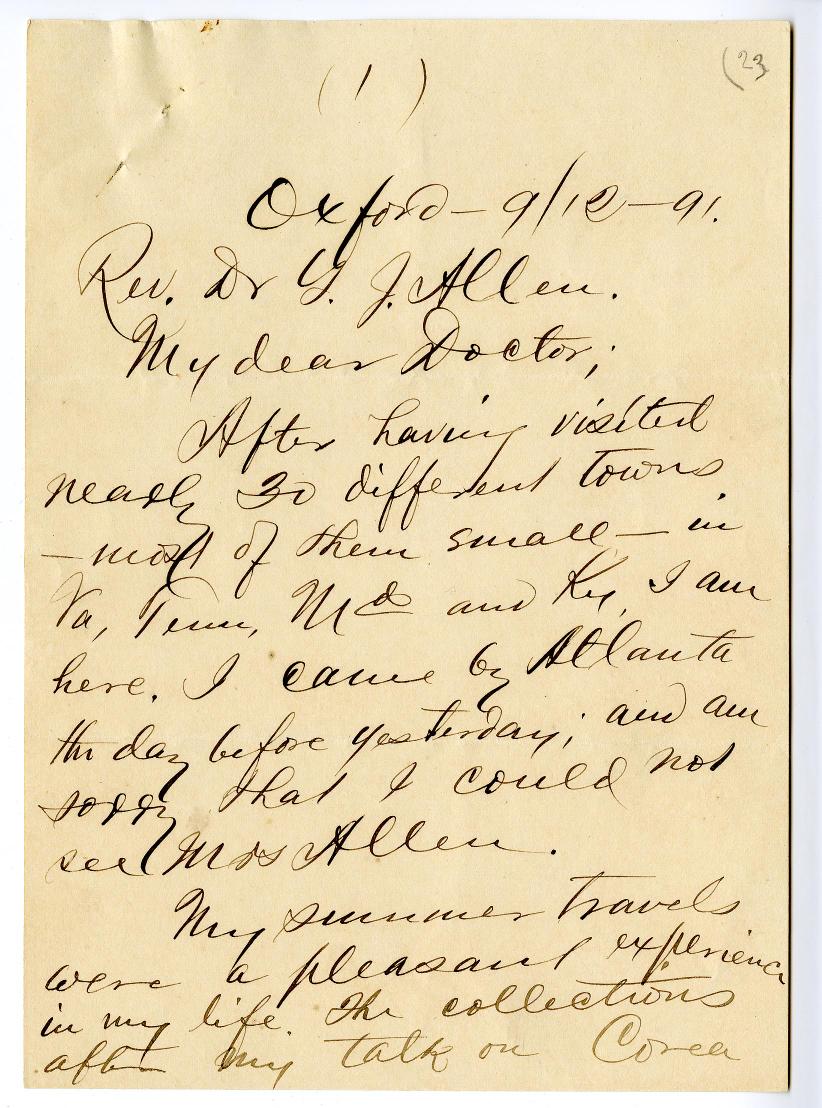 (23
(1)
Oxford – 9/12 – 91.
Rev. Dr Y. J. Allen.
My dear Doctor;
After having visited
nearly 30 different towns
– most of them small – in
Va, Tenn, Md and Ky, I am
here. I came by Atlanta
the day before yesterday; and am
sorry that I could not
see Mrs Allen.
My summer travels
were a pleasant experience
in my life. The collections
after my talk on Corea